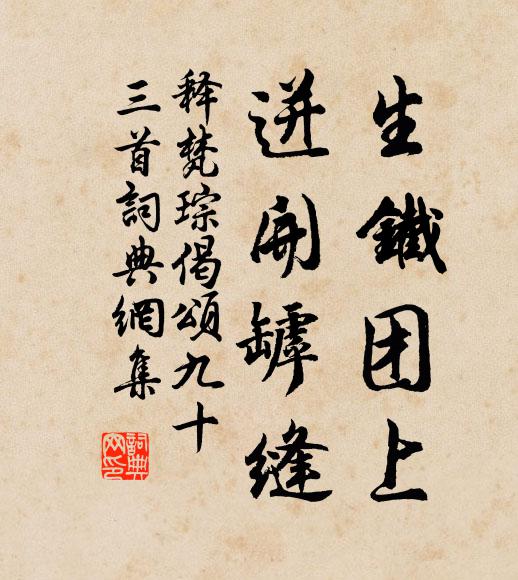 生鐵团上
迸開罅縫
释梵琮偈頌九十
三首詞典網集
詞典
网印